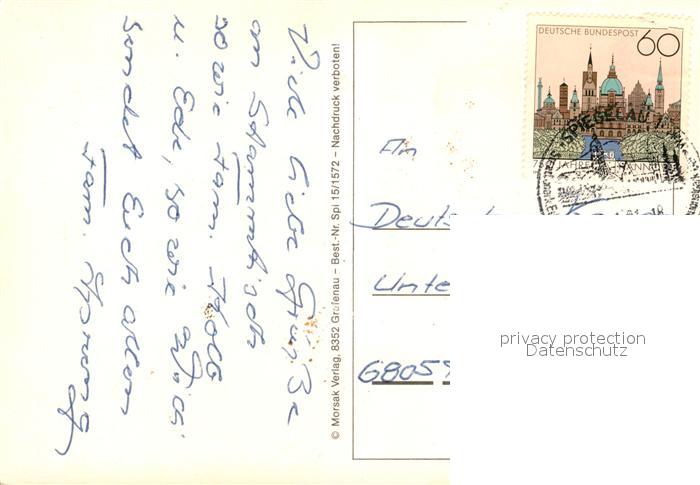 Viele liebe Grüße
am Stammtisch
sowie Fam. Kolb
u. Eck, sowie
sendet Euch allen
Fam.
© Morsak Verlag, 8352 Grafenau – Best.-Nr. Spi 15/1572 – Nachdruck verboten!
DEUTSCHE BUNDESPOST 60
SPIEGELAU
An
Deuts
Unte
68059
privacy protection
Datenschutz